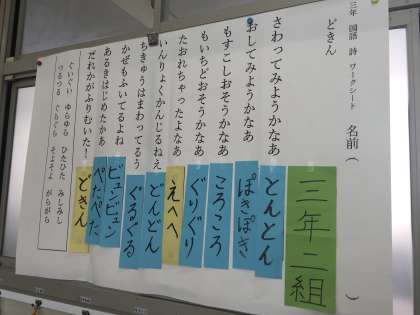 三年 国語 詩 ワークシート 名前(
どきん
さわってみようかなあ とんとん
おしてみようかなあ ぽきぽき
もすこしおそうかなあ ころころ
もいちどおそうかなあ ぐりぐり
たおれちゃったよなあ えへへ
いんりょくかんじるねえ どんどん
ちきゅうはまわってるう ぐるぐる
かぜもふいてるよね ビュンビュン
あるきはじめたかあ ぺたぺた
だれかがふりむいた! どきん
ぐいぐい ゆらゆら ひたひた みしみし
つるつる ぐらぐら そよそよ がらがら
三年二組